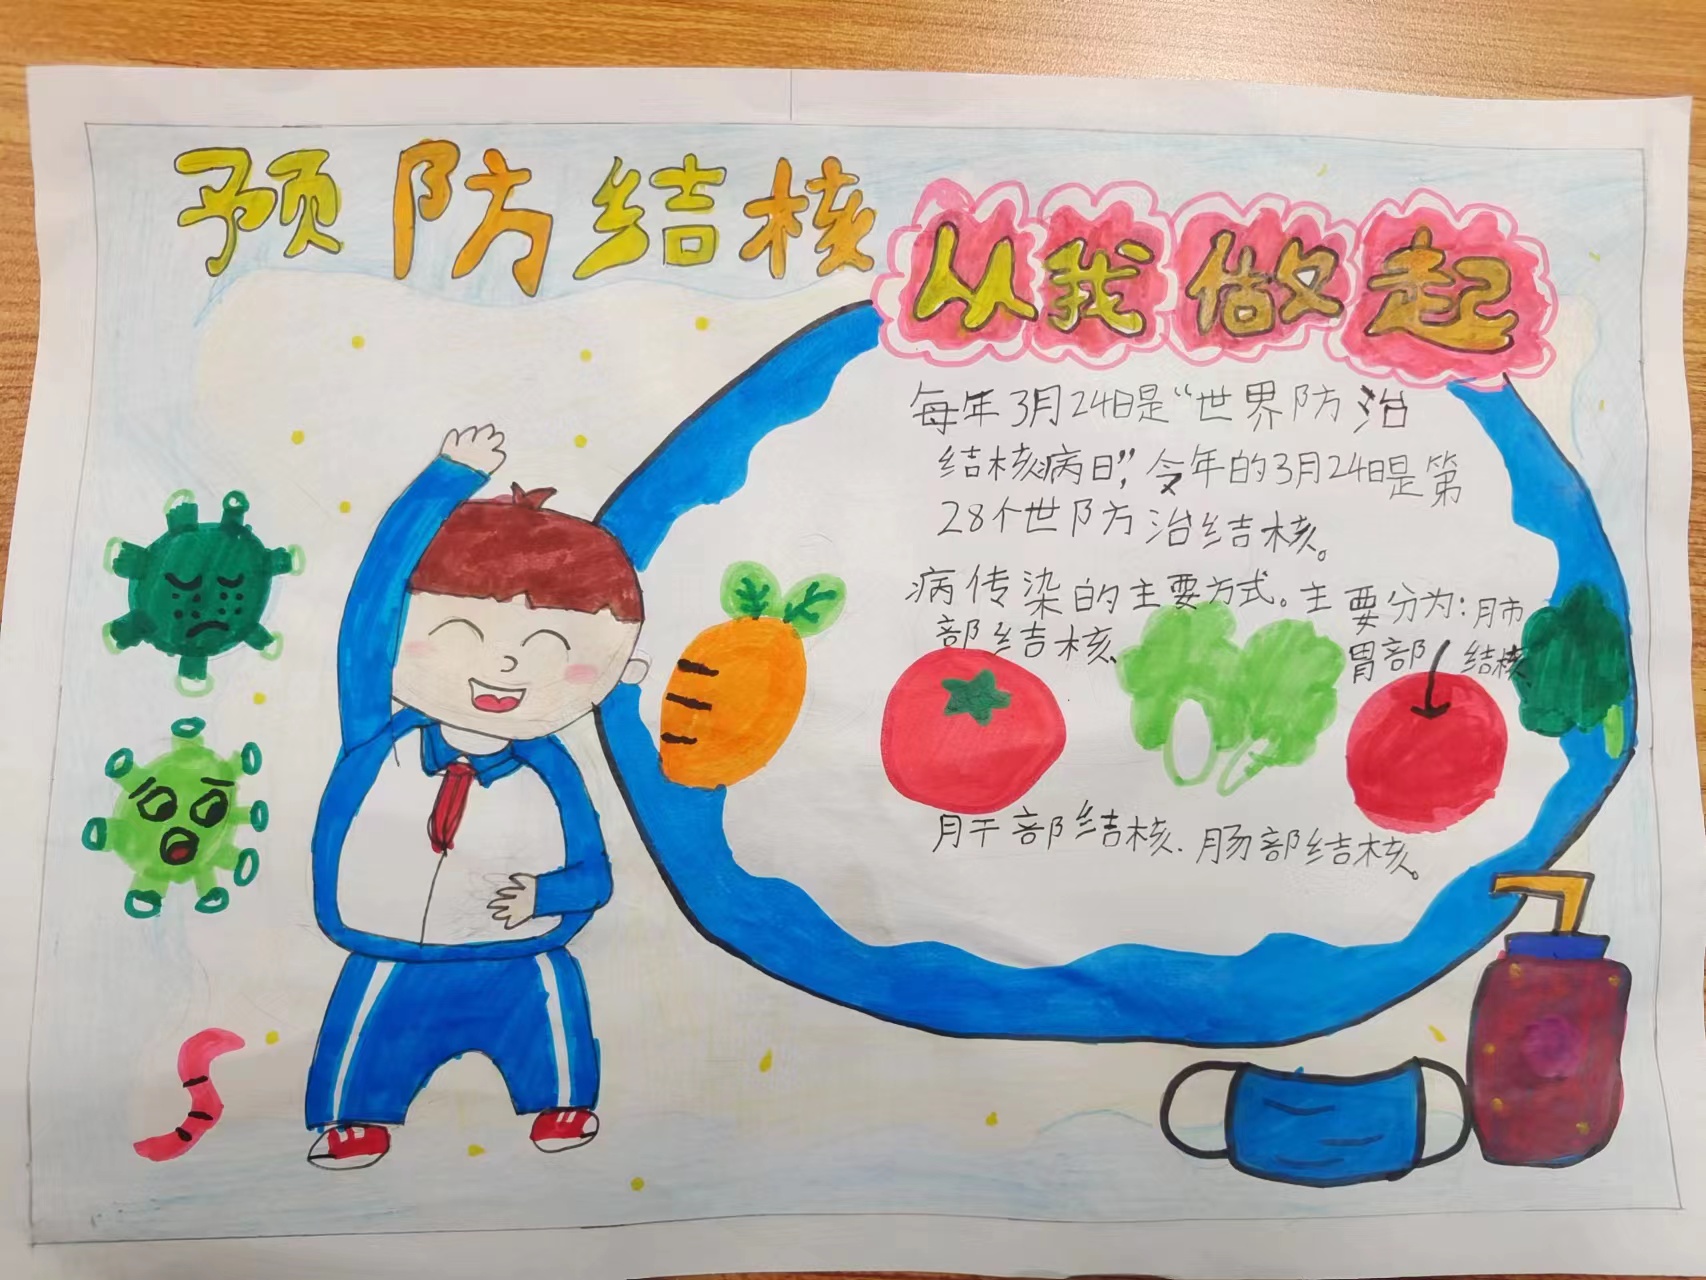 预防结核
从我做起
每年3月24日是“世界防治
结核病日”，今年的3月24日是第
28个世防治结核。
病传染的主要方式。主要分为：肺
部结核、胃部结核、
肝部结核、肠部结核。